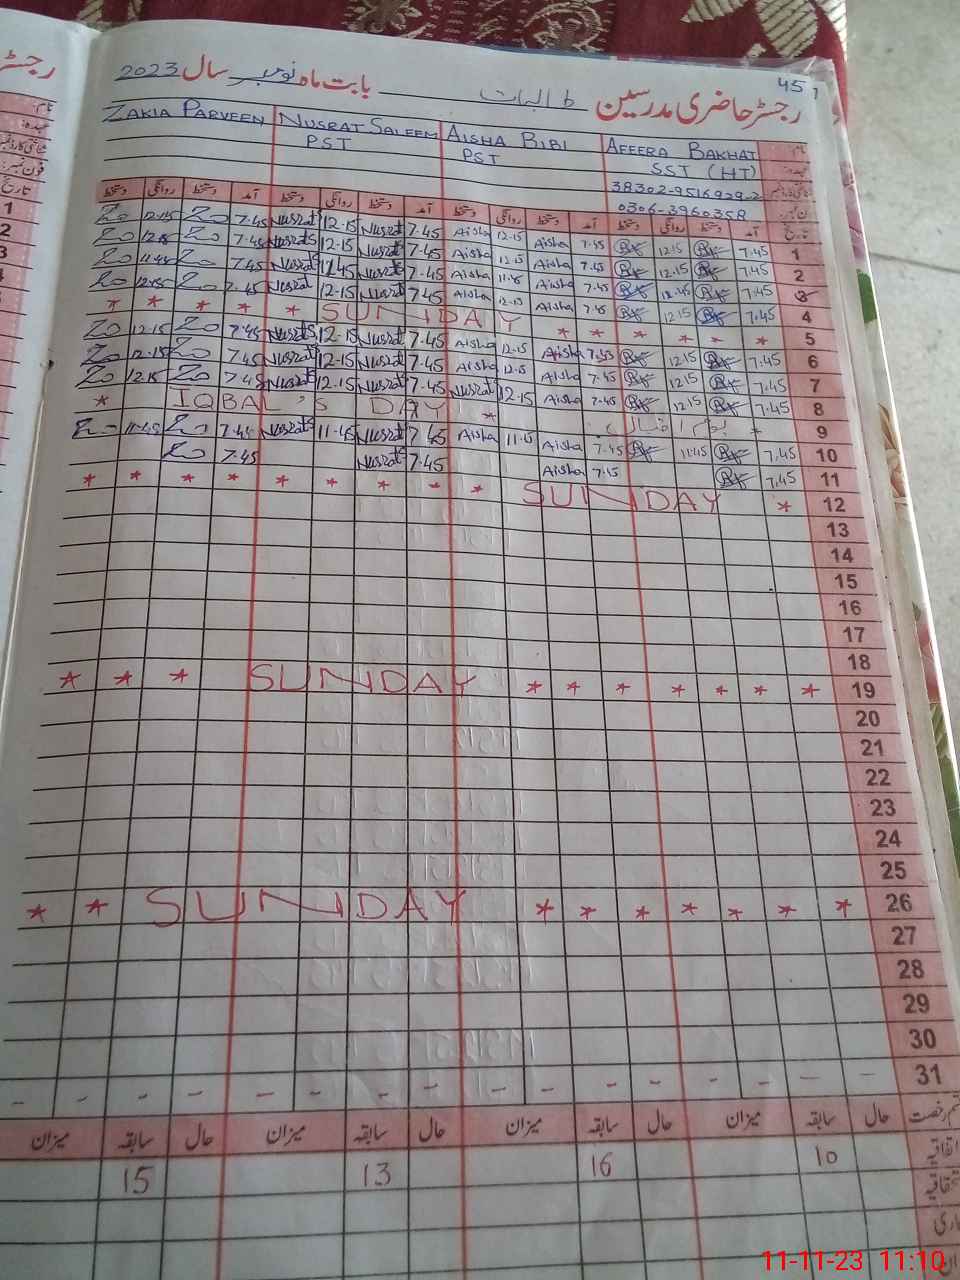 45
رجسٹر حاضری مدرسین طالبات بابت ماہ نومبر سال 2023
نام AFEERA BAKHAT AISHA BIBI NUSRAT SALEEM ZAKIA PARVEEN
SST (HT) PST PST
38302-9516929-2
0306-3960358
تاریخ آمد دستخط روانگی دستخط آمد دستخط روانگی دستخط آمد دستخط روانگی دستخط آمد دستخط روانگی دستخط
1 7.45 12.15 7.45 Aisha 12.15 Aisha 7.45 Nusrat 12.15 Nusrat 7.45 12.15
2 7.45 12.15 7.45 Aisha 12.15 Aisha 7.45 Nusrat 12.15 Nusrat 7.45 12.15
3 7.45 7.45 Aisha 11.45 Aisha 7.45 Nusrat 11.45 Nusrat 7.45 11.45
4 7.45 12.15 7.45 Aisha 12.15 Aisha 7.45 Nusrat 12.15 Nusrat 7.45 12.15
5 * * * * * SUNDAY * * * * *
6 7.45 12.15 7.45 Aisha 12.15 Aisha 7.45 Nusrat 12.15 Nusrat 7.45 12.15
7 7.45 12.15 7.45 Aisha 12.15 Aisha 7.45 Nusrat 12.15 Nusrat 7.45 12.15
8 7.45 12.15 7.45 Aisha 12.15 Nusrat 7.45 Nusrat 12.15 Nusrat 7.45 12.15
9 یوم اقبال * IQBAL'S DAY *
10 7.45 11.45 7.45 Aisha 11.45 Aisha 7.45 Nusrat 11.45 Nusrat 7.45 11.45
11 7.45 7.45 Aisha 7.45 Nusrat 7.45
12 * SUNDAY * * * * * * * * *
13
14
15
16
17
18
19 * * * SUNDAY * * * * * * *
20
21
22
23
24
25
26 * * SUNDAY * * * * * * *
27
28
29
30
31
قسم رخصت حال سابقہ میزان حال سابقہ میزان حال سابقہ میزان حال سابقہ میزان
اتفاقیہ 10 16 13 15
11-11-23 11:10